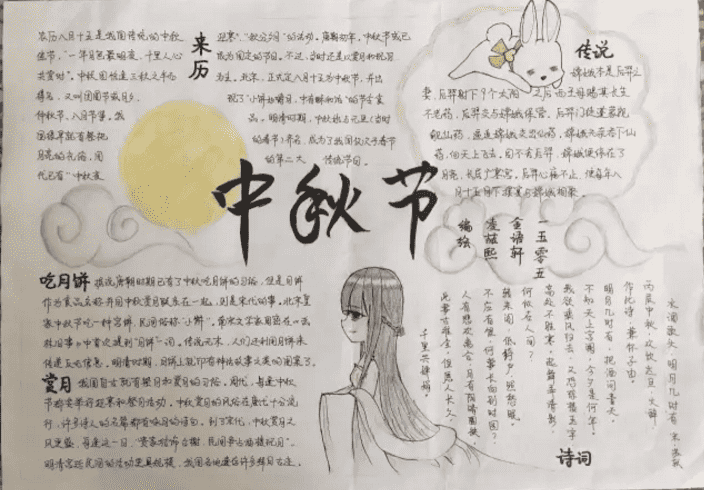 来历
农历八月十五是我国传统的中秋
佳节，"一年月色最明夜，千里人心
共赏时"。中秋因恰值三秋之半而
得名，又叫团圆节或月夕、
仲秋节，八月节等。我
国很早就有祭祀
月亮的礼俗，周
代已有"中秋夜
迎寒"、"秋分夕月"的活动。唐朝初年，中秋节成已
成为固定的节日。不过，当时还是以赏月和祝月
为主。北宋，正式定八月十五为中秋节，并出
现了"小饼如嚼月，中有酥和饴"的节令食
品。明清时期，中秋就与元旦(当时
的春节)齐名，成为了我国仅次于春节
的第二大传统节日。
传说
嫦娥本是后羿之
妻，后羿射下9个太阳之后西王母赐其长生
不老药，后羿交与嫦娥保管。后羿门徒逢蒙觊
觎仙药，逼迫嫦娥交出仙药，嫦娥无奈吞下仙
药，向天上飞去。因不舍后羿，嫦娥便停在了
月亮，长居广寒宫。后羿心痛不止，便每年八
月十五月下摆宴与嫦娥相聚。
中秋节
一五零五
金语轩
编绘
吃月饼 据说唐朝时期已有了中秋吃月饼的习俗，但是月饼
作为食品名称并同中秋赏月联系在一起，则是宋代的事。北宋皇
家中秋节吃一种宫饼，民间俗称"小饼"。南宋文学家周密在《武
林旧事》中首次提到"月饼"一词。传说元末，人们还利用月饼来
传递反元信息。明清时期，月饼上就印有神话故事之类的图案了。
赏月 我国自古就有祭月和赏月的习俗。周代，每逢中秋
节都要举行迎寒和祭月活动。中秋赏月的风俗在唐代十分流
行，许多诗人的名篇都有咏月的诗句。到了宋代，中秋赏月之
风更盛，每逢这一日，"贵家结饰台榭，民间争占酒楼玩月"。
明清宫廷民间的活动更具规模，我国各地遗存许多拜月古迹。
诗词
水调歌头 明月几时有 宋 苏轼
丙辰中秋，欢饮达旦，大醉，
作此诗，兼怀子由。
明月几时有，把酒问青天。
不知天上宫阙，今夕是何年。
我欲乘风归去，又恐琼楼玉宇，
高处不胜寒。起舞弄清影，
何似在人间？
转朱阁，低绮户，照无眠。
不应有恨，何事长向别时圆？
人有悲欢离合，月有阴晴圆缺，
此事古难全。但愿人长久，
千里共婵娟。